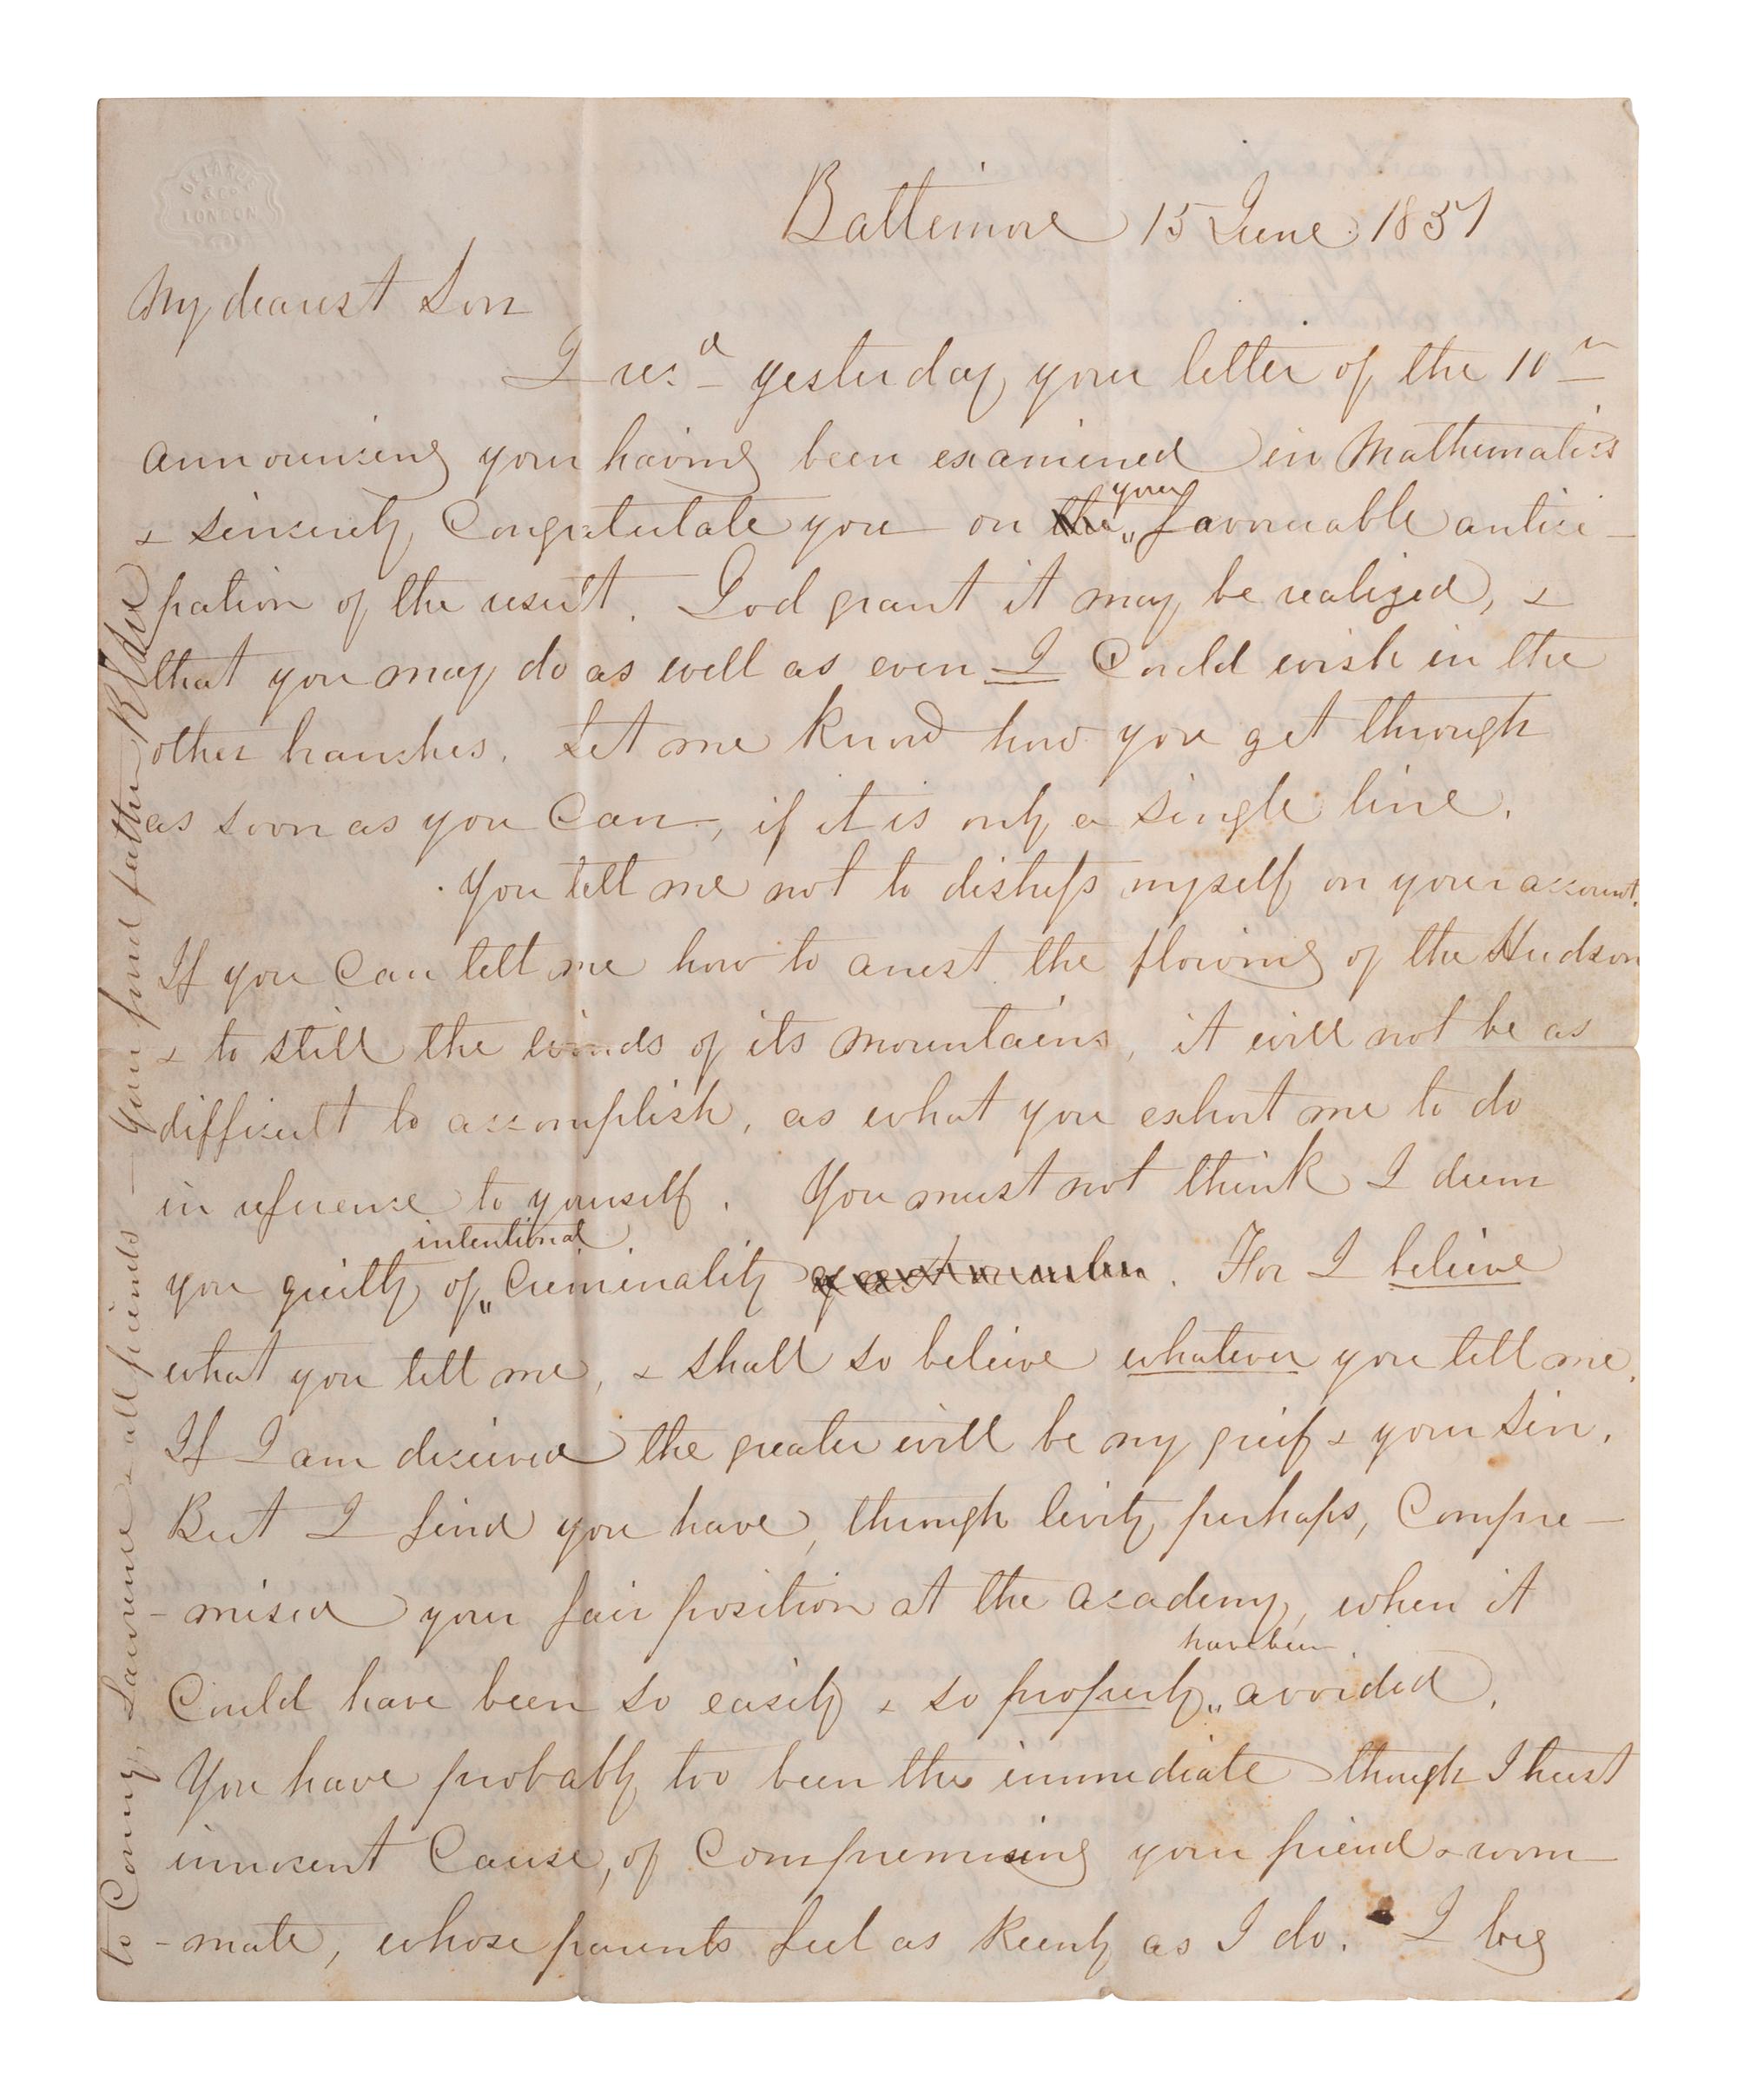 DE LA RUE
& CO
LONDON
Baltimore 15 June 1851
My dearest Son
I recd yesterday your letter of the 10th
announcing your having been examined in Mathematics
& sincerely Congratulate you on the your favourable antici-
pation of the result. God grant it may be realized, &
that you may do as well as even I Could wish in the
other branches. Let me know how you get through
as soon as you Can, if it is only a single line.
You tell me not to distress myself on your account.
If you Can tell me how to arrest the flowing of the Hudson
& to still the winds of its mountains, it will not be as
difficult to accomplish, as what you exhort me to do
in reference to yourself. You must not think I deem
you guilty of intentional Criminality. For I believe
what you tell me, & shall so believe whatever you tell me.
If I am deceived the greater will be my grief & your sin.
But I find you have, through levity perhaps, Compro-
-mised your fair position at the academy, when it
Could have been so easily & so properly have been avoided.
You have probably too been the immediate though I trust
innocent Cause, of Compromising your friend & room
-mate, whose parents feel as keenly as I do. I beg
to Comy, Lawrence & all friends — Your fond father R E Lee